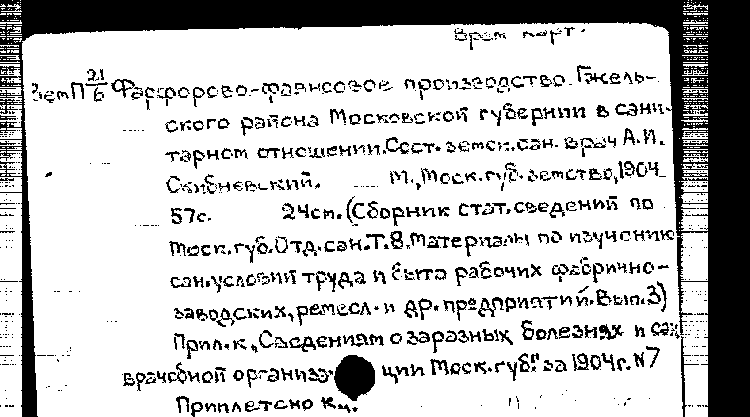 Врем карт.
ЗемП 21/6 Фарфорово-фаянсовое производство Гжель-
ского района Московской губернии в сани-
тарном отношении. Сост. земск. сан. врач А.И.
Скибневский. М., Моск. губ. земство, 1904
57с. 24см. (Сборник стат. сведений по
Моск. губ. Отд. сан. Т.8. Материалы по изучению
сан. условий труда и быта рабочих фабрично-
заводских, ремесл. и др. предприятий. Вып. 3)
Прил. к „Сведениям о заразных болезнях и сан.
врачебной организа- ции Моск. губ." за 1904г. №7
Приплетено к